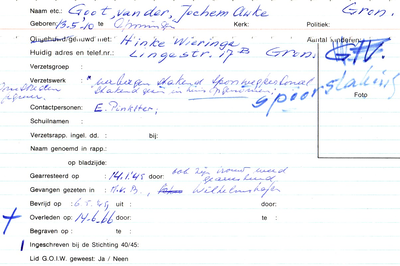 Naam etc.: Goot, van der, Jochem Auke Gron.
Geboren: 13.5.10 te Kerk: Politiek:
Ongehuwd/gehuwd met: Hinke Wieringa Aantal kinderen:
Huidig adres en telef.nr.: Lingestr. 17B Gron.
Verzetsgroep :
Verzetswerk : verbergen stakend spoorwegpersoneel
stakend gezin in hun
spoorstaking
Foto
Contactpersonen: E. Pinkster,
Schuilnaam :
Verzetsrapp. ingel. dd. : bij:
Naam genoemd in rapp.:
op bladzijde:
Gearresteerd op : 14.1.45 door: ook zijn vrouw werd
gearresteerd
Gevangen gezeten in : H.v.B., Wilhelmshafen
Bevrijd op : 6.5.45 uit : door:
Overleden op : 14.6.66 door: te :
Begraven op : te :
Ingeschreven bij de Stichting 40/45:
Lid G.O.I.W. geweest: Ja / Neen